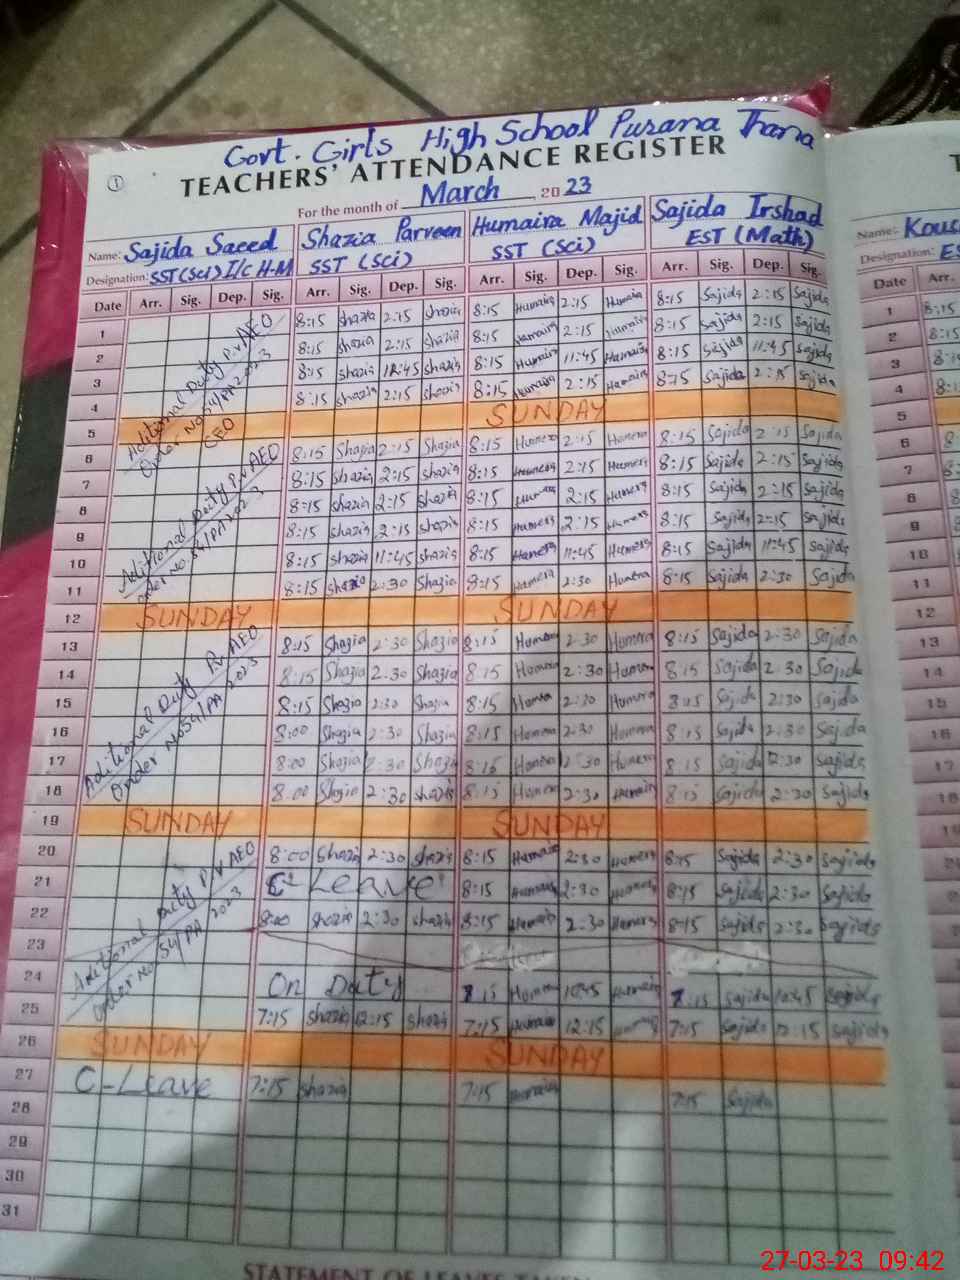 Govt. Girls High School Purana Thana
TEACHERS' ATTENDANCE REGISTER
For the month of March 2023
Name: Sajida Saeed Shazia Parveen Humaira Majid Sajida Irshad
Designation: SST(Sci) I/C H-M SST (Sci) SST (Sci) EST (Math)
Date Arr. Sig. Dep. Sig. Arr. Sig. Dep. Sig. Arr. Sig. Dep. Sig. Arr. Sig. Dep. Sig.
1 8:15 Shazia 2:15 Shazia 8:15 Humaira 2:15 Humaira 8:15 Sajida 2:15 Sajida
2 8:15 Shazia 2:15 Shazia 8:15 Humaira 2:15 Humaira 8:15 Sajida 2:15 Sajida
3 8:15 Shazia Shazia 8:15 Humaira 11:45 Humaira 8:15 Sajida 11:45 Sajida
4 8:15 Shazia 2:15 Shazia 8:15 Humaira 2:15 Humaira 8:15 Sajida 2:15 Sajida
Aditional Duty P.v AEO
Order No 54/PA 2023
CEO
5 SUNDAY
6 8:15 Shazia 2:15 Shazia 8:15 Humera 2:15 Humera 8:15 Sajida 2:15 Sajida
7 8:15 Shazia 2:15 Shazia 8:15 Humera 2:15 Humera 8:15 Sajida 2:15 Sajida
8 8:15 Shazia 2:15 Shazia 8:15 Humaira 2:15 Humera 8:15 Sajida 2:15 Sajida
9 8:15 Shazia 2:15 Shazia 8:15 Humera 2:15 Humera 8:15 Sajida 2:15 Sajida
10 8:15 Shazia 11:45 Shazia 8:15 Humera 11:45 Humera 8:15 Sajida 11:45 Sajida
11 8:15 Shazia 2:30 Shazia 8:15 Humera 2:30 Humera 8:15 Sajida 2:30 Sajida
Aditional Duty P.v AEO
Order No. 54/PA 2023
12 SUNDAY SUNDAY
13 8:15 Shazia 2:30 Shazia 8:15 Humera 2:30 Humera 8:15 Sajida 2:30 Sajida
14 8:15 Shazia 2:30 Shazia 8:15 Humera 2:30 Humera 8:15 Sajida 2:30 Sajida
15 8:15 Shazia 2:30 Shazia 8:15 Humera 2:30 Humera 8:15 Sajida 2:30 Sajida
16 8:00 Shazia 2:30 Shazia 8:15 Humera 2:30 Humera 8:15 Sajida 2:30 Sajida
17 8:00 Shazia 2:30 Shazia 8:15 Humera 2:30 Humera 8:15 Sajida 2:30 Sajida
18 8:00 Shazia 2:30 Shazia 8:15 Humera 2:30 Humaira 8:15 Sajida 2:30 Sajida
Aditional Duty P.v AEO
Order No 54/PA 2023
19 SUNDAY SUNDAY
20 8:00 Shazia 2:30 Shazia 8:15 Humaira 2:30 Humera 8:15 Sajida 2:30 Sajida
21 C-Leave 8:15 Humaira 2:30 Humera 8:15 Sajida 2:30 Sajida
22 8:00 Shazia 2:30 Shazia 8:15 Humaira 2:30 Humera 8:15 Sajida 2:30 Sajida
23
24 On Duty 7:15 Humera 10:45 Humaira 7:15 Sajida 10:45 Sajida
25 7:15 Shazia 12:15 Shazia 7:15 Humaira 12:15 7:15 Sajida 12:15 Sajida
Aditional Duty P.v AEO
Order No. 54/PA 2023
26 SUNDAY SUNDAY
27 C-Leave 7:15 Shazia 7:15 Humaira 7:15 Sajida
28
29
30
31
STATEMENT OF LEAVES TAKEN
Name:
Designation:
Date Arr.
1 8:15
2 8:15
3
4 8:15
5
6
7
8
9
10
11
12
13
14
15
16
17
18
19
27-03-23 09:42